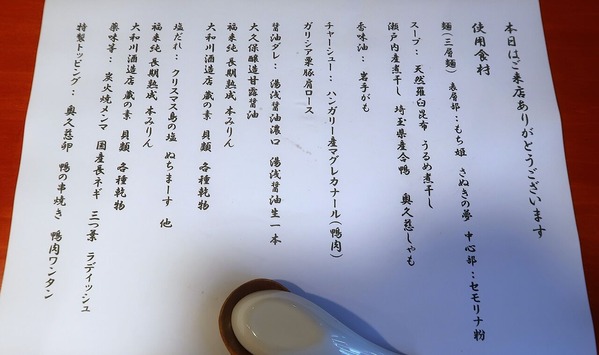 本日はご来店ありがとうございます
使用食材
麺(三層麺) 表層部:もち姫 さぬきの夢 中心部:セモリナ粉
スープ: 天然羅臼昆布 うるめ煮干し
瀬戸内産煮干し 埼玉県産合鴨 奥久慈しゃも
香味油: 岩手がも
チャーシュー: ハンガリー産マグレカナール(鴨肉)
ガリシア栗豚肩ロース
醤油ダレ: 湯浅醤油濃口 湯浅醤油生一本
大久保醸造甘露醤油
福来純 長期熟成 本みりん
大和川酒造店 蔵の素 貝類 各種乾物
塩だれ: クリスマス島の塩 ぬちまーす 他
福来純 長期熟成 本みりん
大和川酒造店 蔵の素 貝類 各種乾物
薬味等: 炭火焼メンマ 国産長ネギ 三つ葉 ラディッシュ
特製トッピング: 奥久慈卵 鴨の串焼き 鴨肉ワンタン